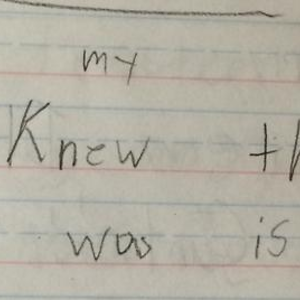 my
Knew th
was is